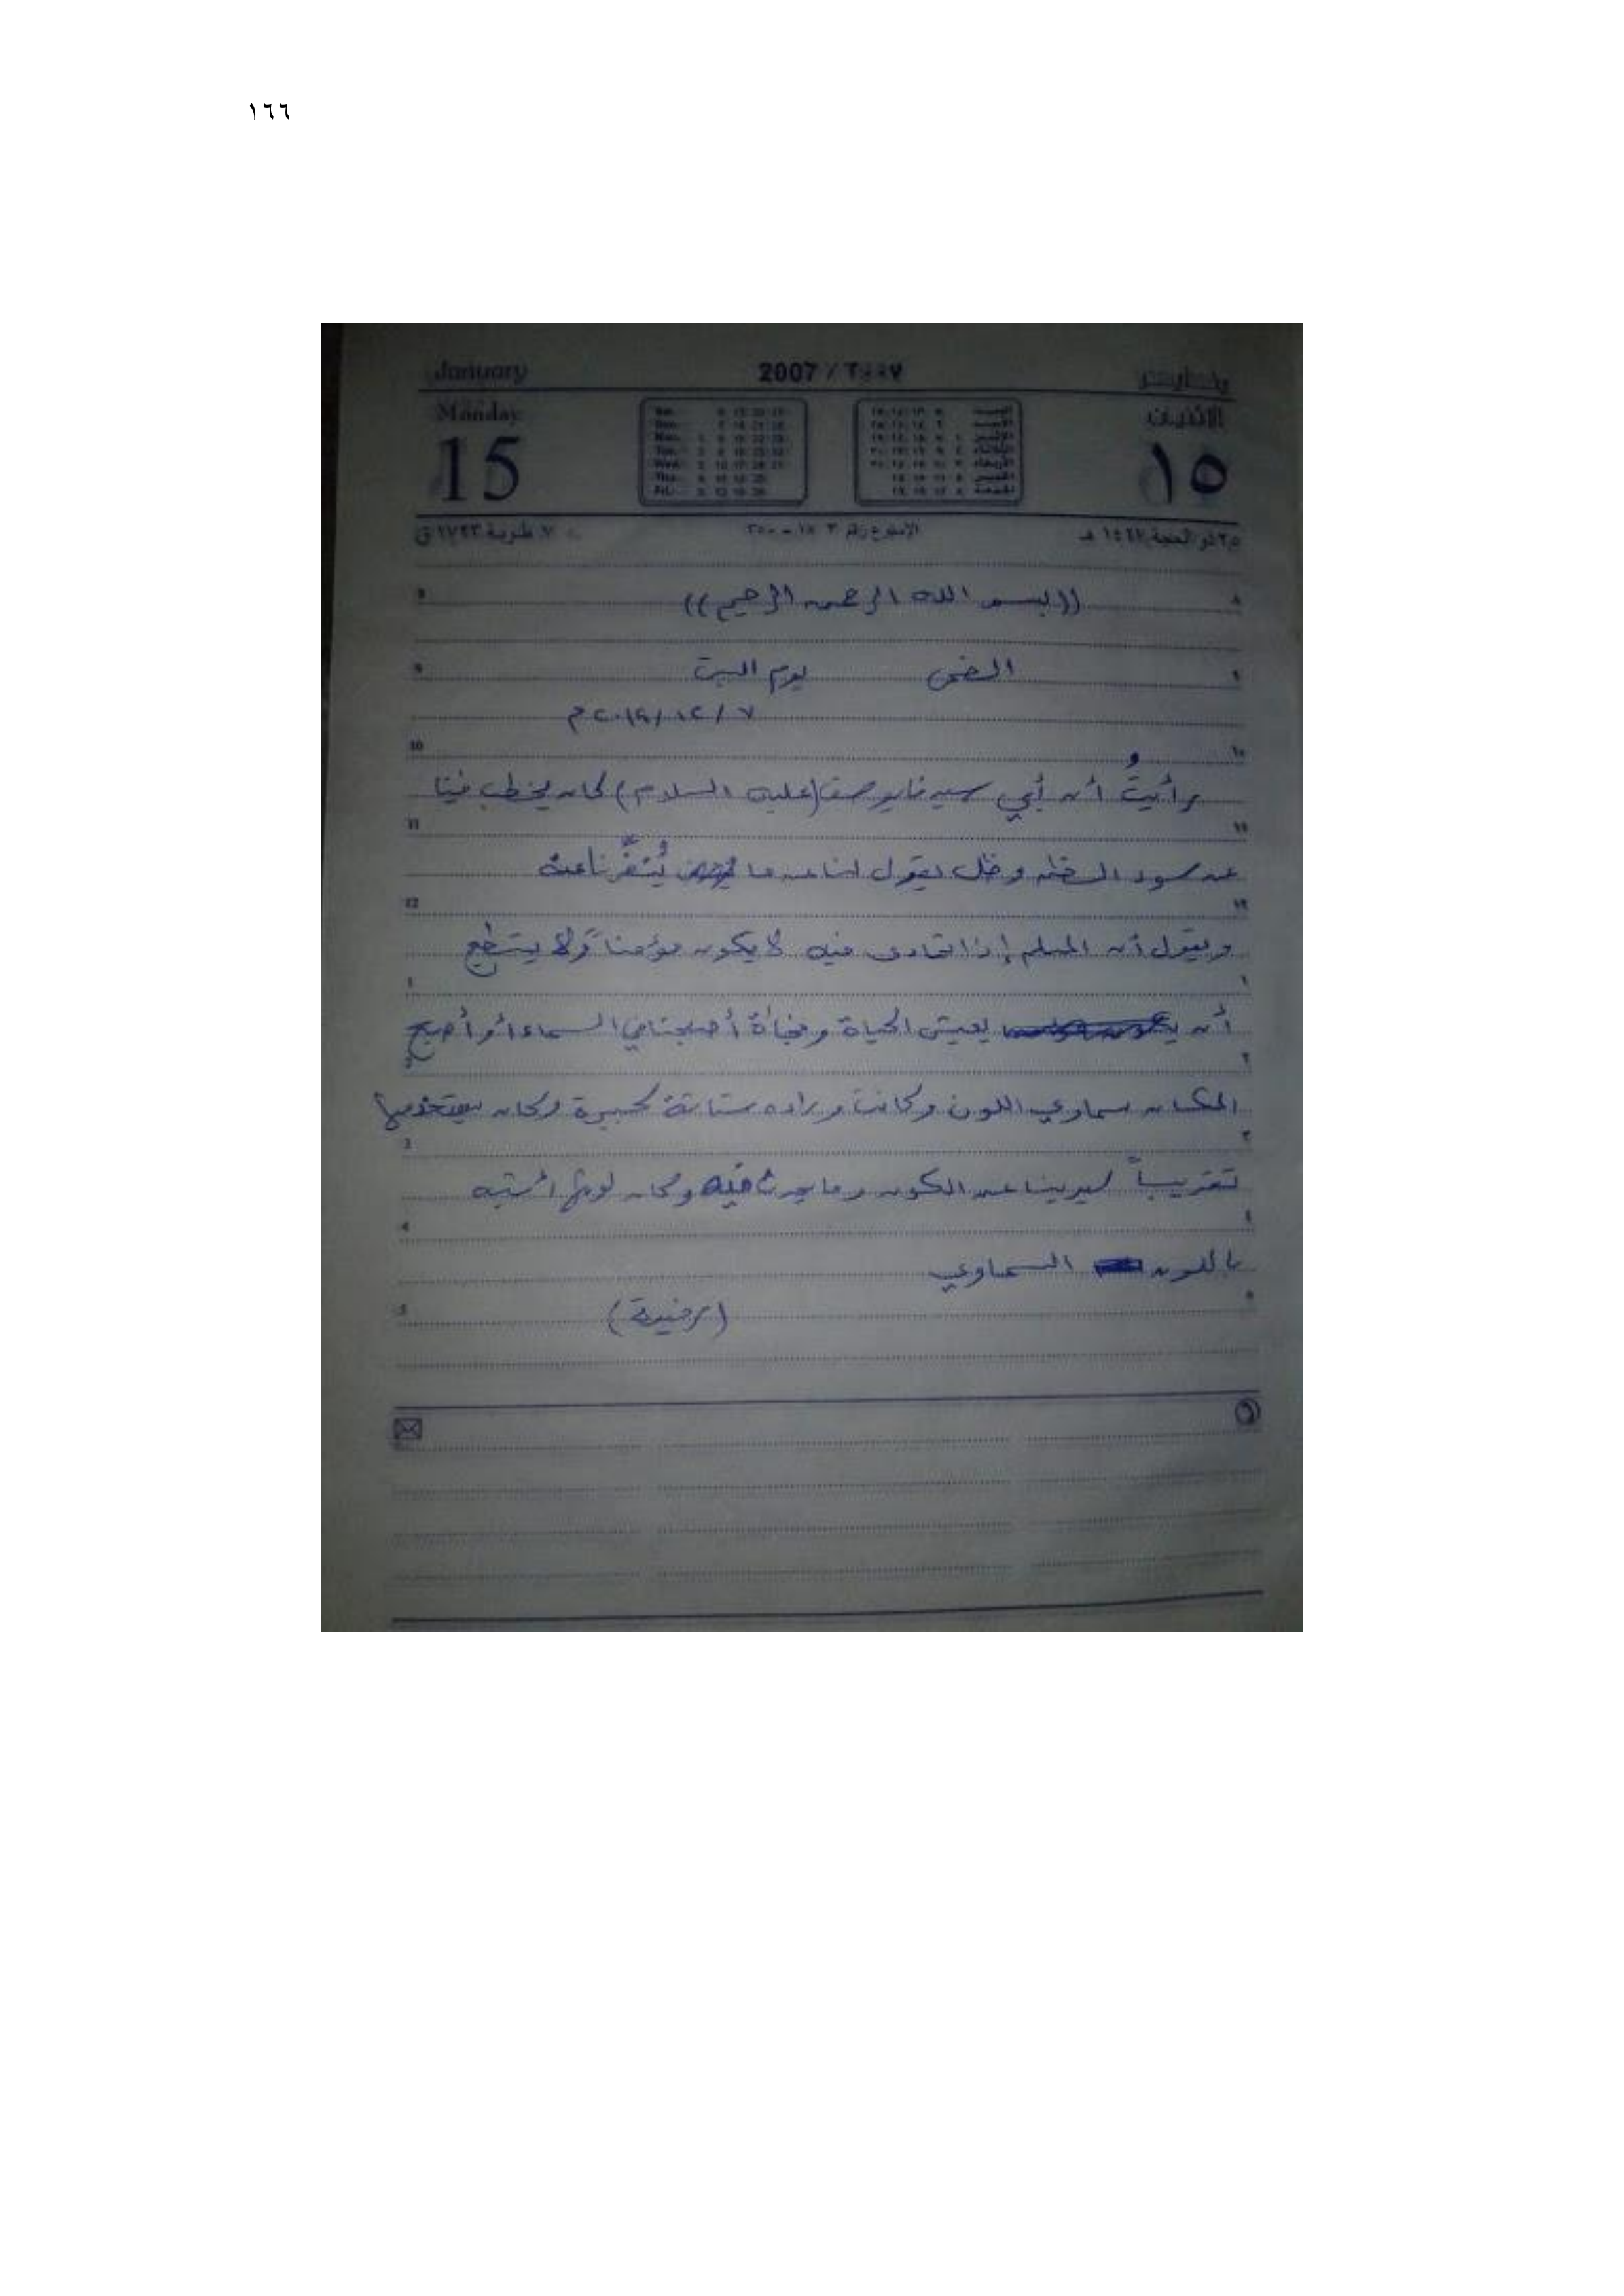 ١٦٦
January 2007 / ٢٠٠٧ يناير
Monday الاثنين
15 ١٥
٢٥ ذو الحجة ١٤٢٧ هـ
((بسم الله الرحمن الرحيم))
الضحى يوم السبت
٧ / ١٢ / ٢٠١٤ م
رأيتُ أن أبي سيدنا يوسف (عليه السلام) كان يخطب فينا
عن سوء الظن وظل يقول لنا عن ما يُنفِّرنا عنه
ويقول أن المسلم إذا تمادى فيه لا يكون مؤمناً ولا يستطيع
أن يعيش الحياة وفجأة أصبحنا في السماء أو أصبح
المكان سماوي اللون وكانت وراءه ستارة كبيرة وكان يستخدمها
تقريباً ليرينا عن الكون وما يحدث فيه وكان لونها أشبه
باللون السماوي
(رضية)